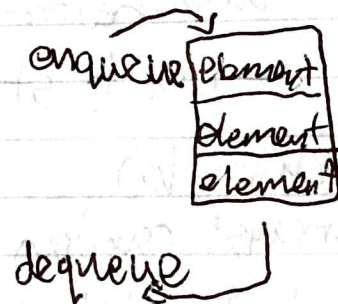 enqueue element
element
element
dequeue